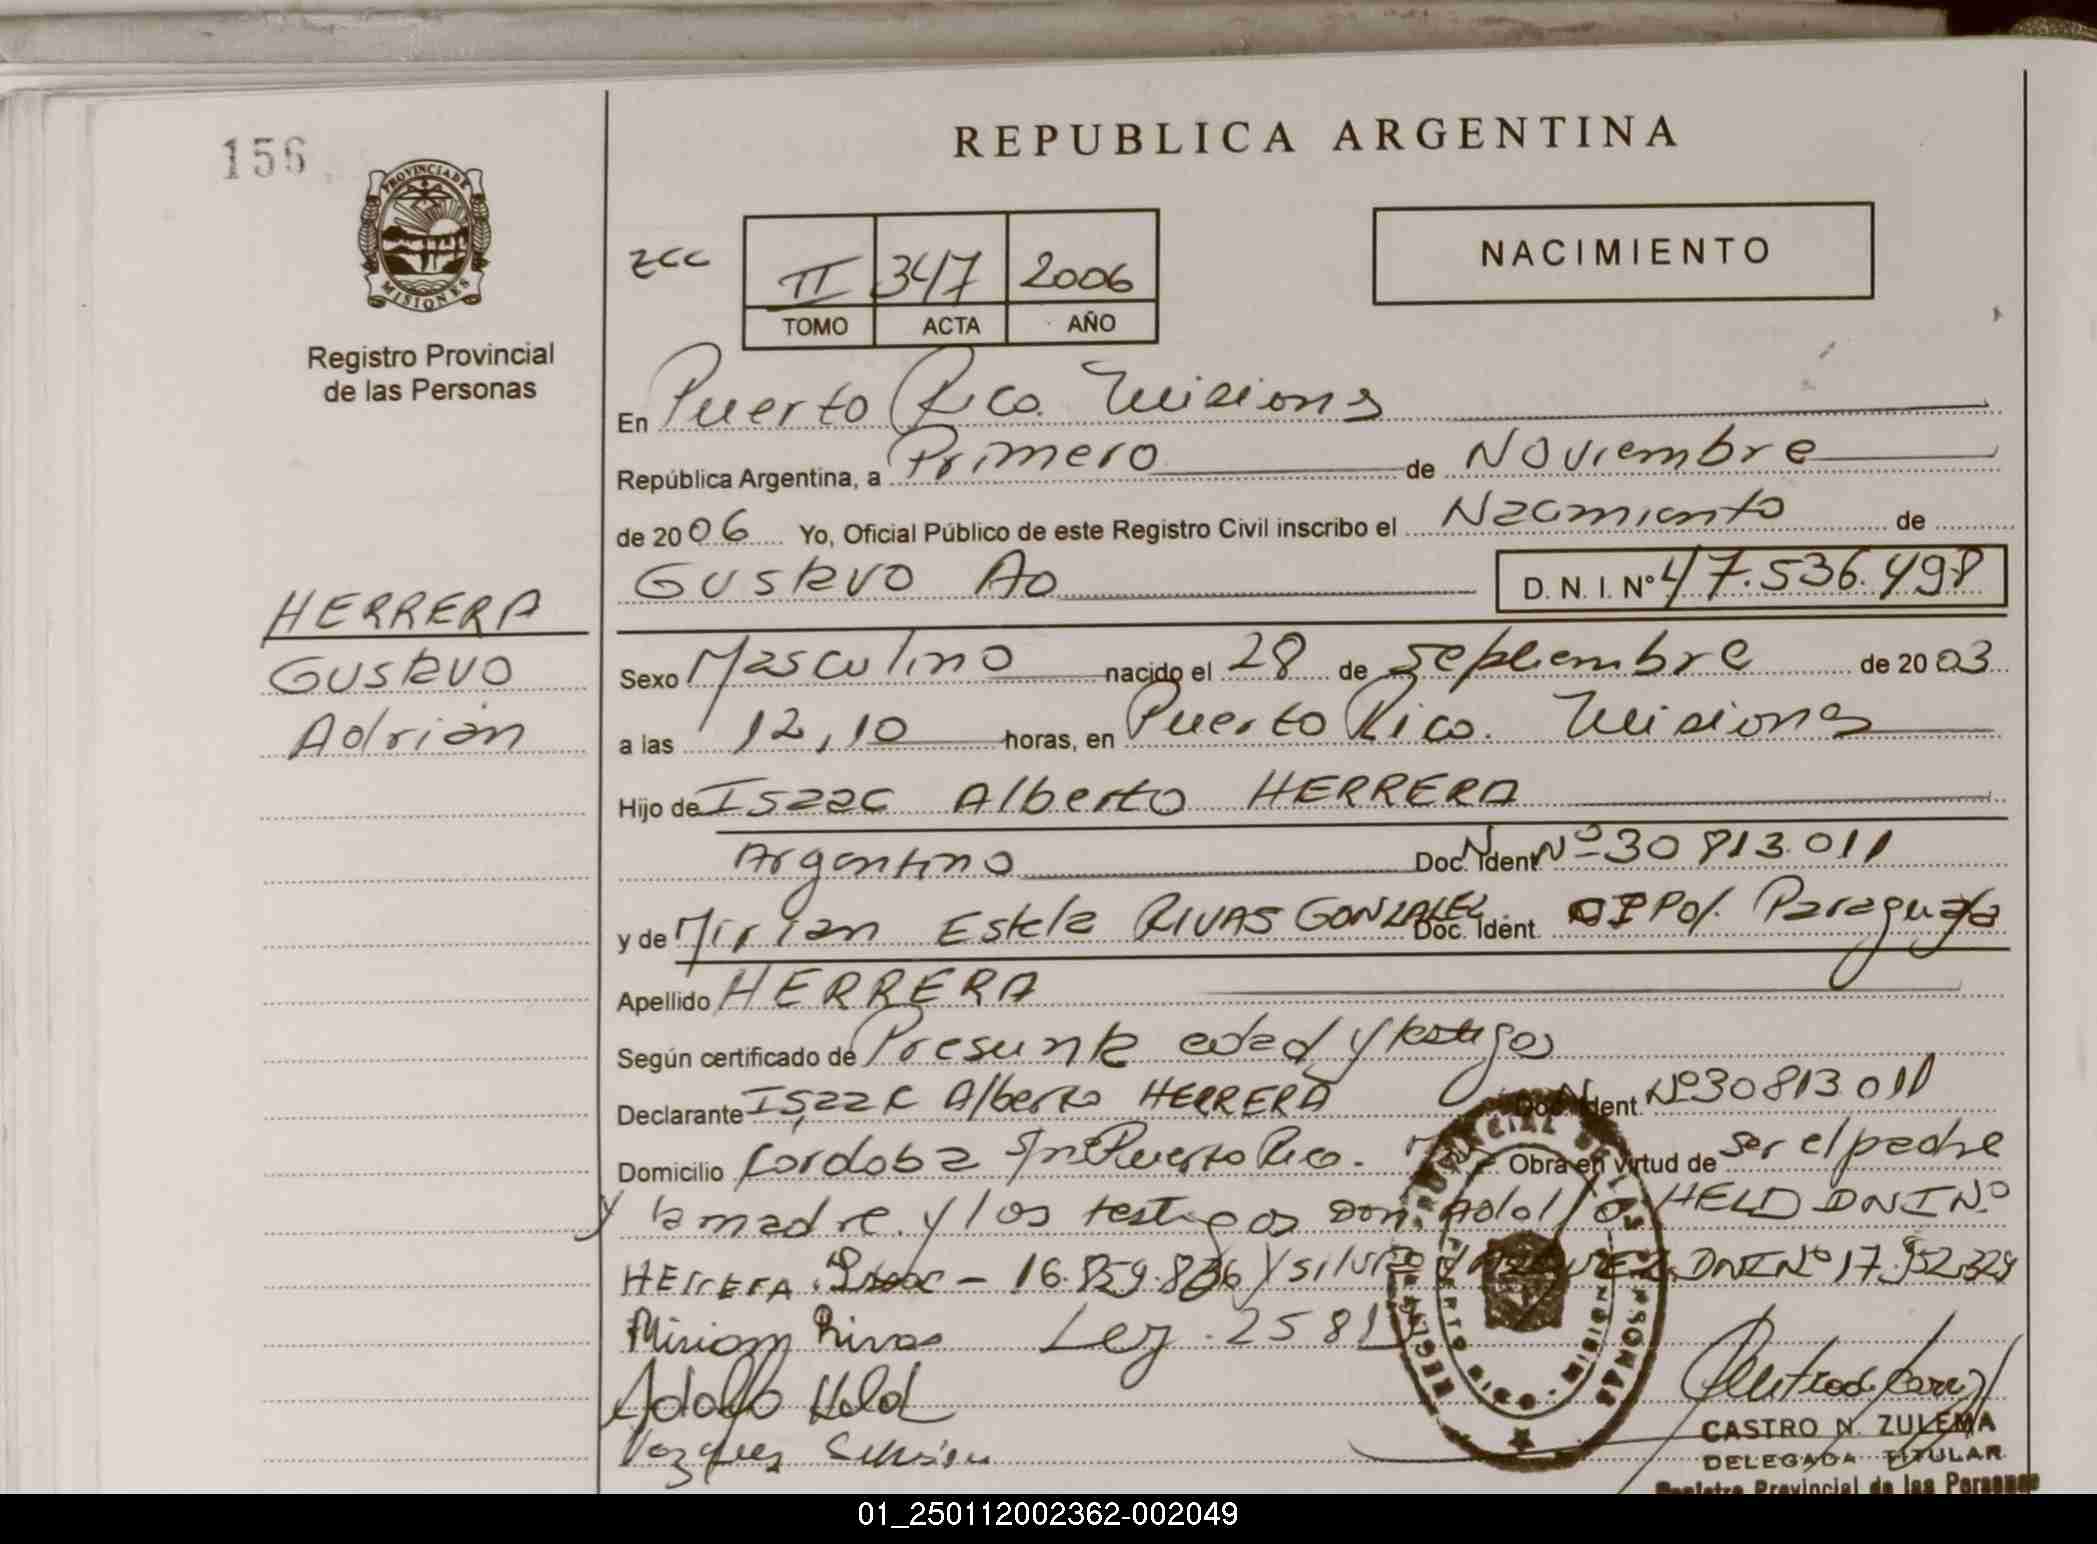 156
REPUBLICA ARGENTINA
PROVINCIA DE
MISIONES
Registro Provincial
de las Personas
zcc
II 347 2006
TOMO ACTA AÑO
NACIMIENTO
En Puerto Rico. Misiones
República Argentina, a Primero de Noviembre
de 2006 Yo, Oficial Público de este Registro Civil inscribo el Nacimiento de
Gustavo Ao D.N.I. Nº 47.536.498
HERRERA
Gustavo
Adrian
Sexo Masculino nacido el 28 de septiembre de 2003
a las 12,10 horas, en Puerto Rico. Misiones
Hijo de Isaac Alberto HERRERA
Argentino Doc. Ident Nº 30 813.011
y de Mirian Estela RIVAS GONZALEZ Doc. Ident. CI Pol. Paraguaya
Apellido HERRERA
Según certificado de Presunta edad y testigos
Declarante Isaac Alberto HERRERA Doc. Ident. Nº 30 813 011
Domicilio Córdoba s/n Puerto Rico. Obra en virtud de ser el padre
y la madre. y los testigos Don Adolfo HELD DNI Nº
HErrEra 16.859.836 y silvio DNI Nº 17.952.329
Miriam Rivas Ley. 25819
Adolfo Held
Vazquez
CASTRO N. ZULEMA
DELEGADA TITULAR
Registro Provincial de las Personas
01_250112002362-002049